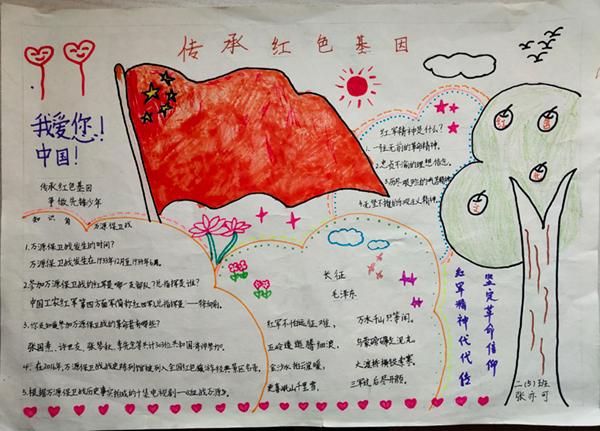 传承红色基因
我爱你!
中国!
传承红色基因
争做先锋少年
知识角
万源保卫战
1.万源保卫战发生的时间?
万源保卫战发生在1933年12月至1934年6月。
2.参加万源保卫战的红军是哪一支部队?总指挥是谁?
中国工农红军第四方面军简称红四军总指挥是——徐向前。
3.你还知道参加万源保卫战的革命前辈有哪些?
5.根据万源保卫战历史事实拍成的十集电视剧
红军精神是什么?
1.一往无前的革命精神。
2.忠贞不渝的理想信念。
长征
毛泽东
红军不怕远征难,
万水千山只等闲。
五岭逶迤腾细浪,
乌蒙磅礴走泥丸。
金沙水拍云崖暖,
大渡桥横铁索寒。
更喜岷山千里雪,
三军过后尽开颜。
坚定革命信仰
红军精神代代传
二(5)班
张亦可